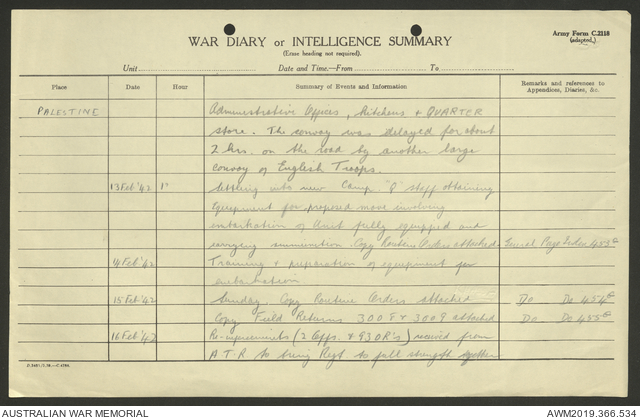 Army Form C.2118
(adapted.)
WAR DIARY or INTELLIGENCE SUMMARY
(Erase heading not required).
Unit
Date and Time.—From
To
Place
Date
Hour
Summary of Events and Information
Remarks and references to
Appendices, Diaries, &c.
PALESTINE
Administrative Offices, Kitchens & QUARTER
store. The convoy was delayed for about
2 hrs. on the road by another large
convoy of English Troops.
13 Feb '42
Settling into new Camp. "Q" staff obtaining
equipment for proposed move involving
embarkation of Unit fully equipped and
carrying ammunition. Copy Routine Orders attached
14 Feb '42
Training & preparation of equipment for
embarkation
15 Feb '42
Sunday. Copy Routine Orders attached
Do Do
Copy Field Returns 3008 & 3009 attached
Do Do
16 Feb '42
Re-inforcements (2 Offs. & 93 OR's) received from
A.T.R to bring Regt to full strength
AUSTRALIAN WAR MEMORIAL
AWM2019.366.534